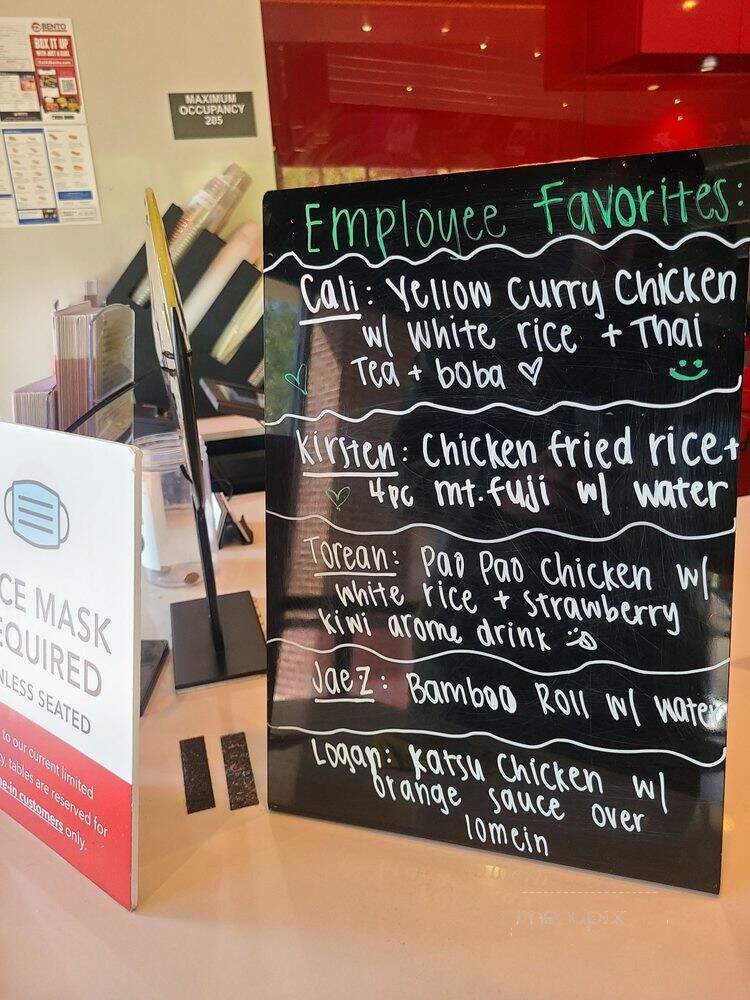 BENTO
BOX IT UP
MAXIMUM
OCCUPANCY
205
Employee Favorites:
Cali: Yellow Curry Chicken
w/ white rice + Thai
Tea + boba
Kirsten: Chicken fried rice+
4pc mt.fuji w/ water
Torean: Pao Pao Chicken w/
white rice + strawberry
kiwi arome drink
Jaez: Bamboo Roll w/ water
Logan: Katsu Chicken w/
orange sauce over
lomein
CE MASK
EQUIRED
NLESS SEATED
to our current limited
y, tables are reserved for
e-in customers only.
menupix